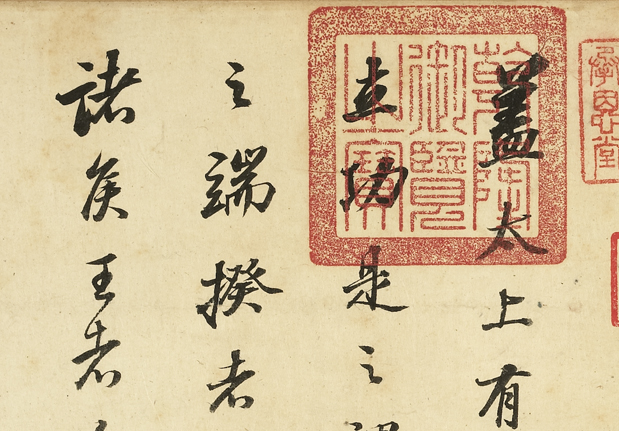 蓋太上有
立功是之
之端揆者
諸侯王者
乾隆
御覽
之寶